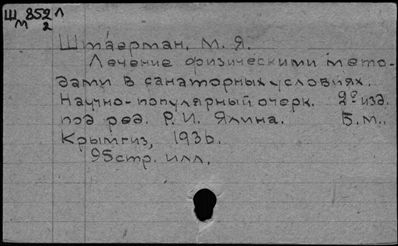 Ш 852 Л
М 2
Штаерман, М. Я.
Лечение физическими мето-
дами в санаторных условиях.
Научно-популярный очерк. 2е изд.
под ред. Р. И. Ялина. Б.м.,
Крымгиз, 1936.
95 стр. илл.